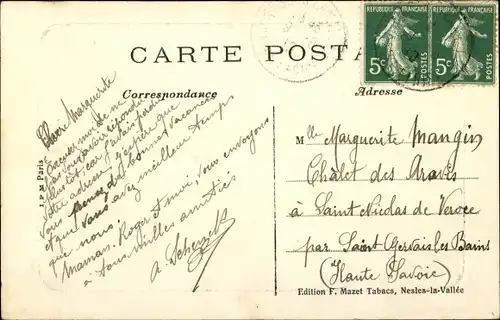 CARTE POSTA
Correspondance
Adresse
REPUBLIQUE FRANÇAISE
5c
POSTES
REPUBLIQUE FRANÇAISE
5c
POSTES
Chère Marguerite
Excusez moi de ne
pas vous avoir répondu
plus tôt car j'avais perdu
votre adresse j'espère que
vous prenez de bonnes vacances
et que vous avez meilleur temps
que nous.
Maman, Roger et moi, vous envoyons
à tous mille amitiés
A.
I. P. M Paris
Mlle Marguerite Mangin
Châlet des Aravis
à Saint Nicolas de Veroce
par Saint Gervais les Bains
(Haute Savoie)
Edition F. Mazet Tabacs, Nesles-la-Vallée